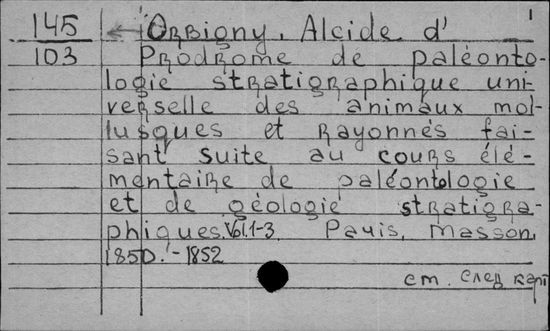 1
145 Orbigny, Alcide d'
103 Prodrome de paléonto-
logie stratigraphique uni-
verselle des animaux mol-
lusques et rayonnés fai-
sant suite au cours élé-
mentaire de paléontologie
et de géologie stratigra-
phiques. Vol. 1-3. Paris, Masson,
1850. - 1852
ст. след карт